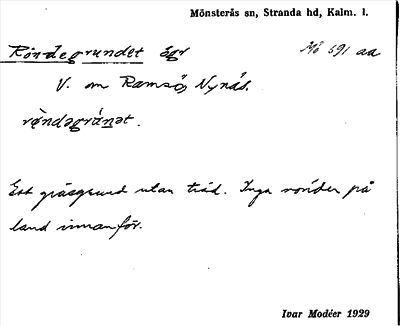 Mönsterås sn, Stranda hd, Kalm. l.
Röndegrundet Ägr Mö 591 aa
V. om Ramsö, Nynäs.
rö̀ndəgrúnət.
Ett gräsgrund utan träd. Inga rönder på
land innanför.
Ivar Modéer 1929